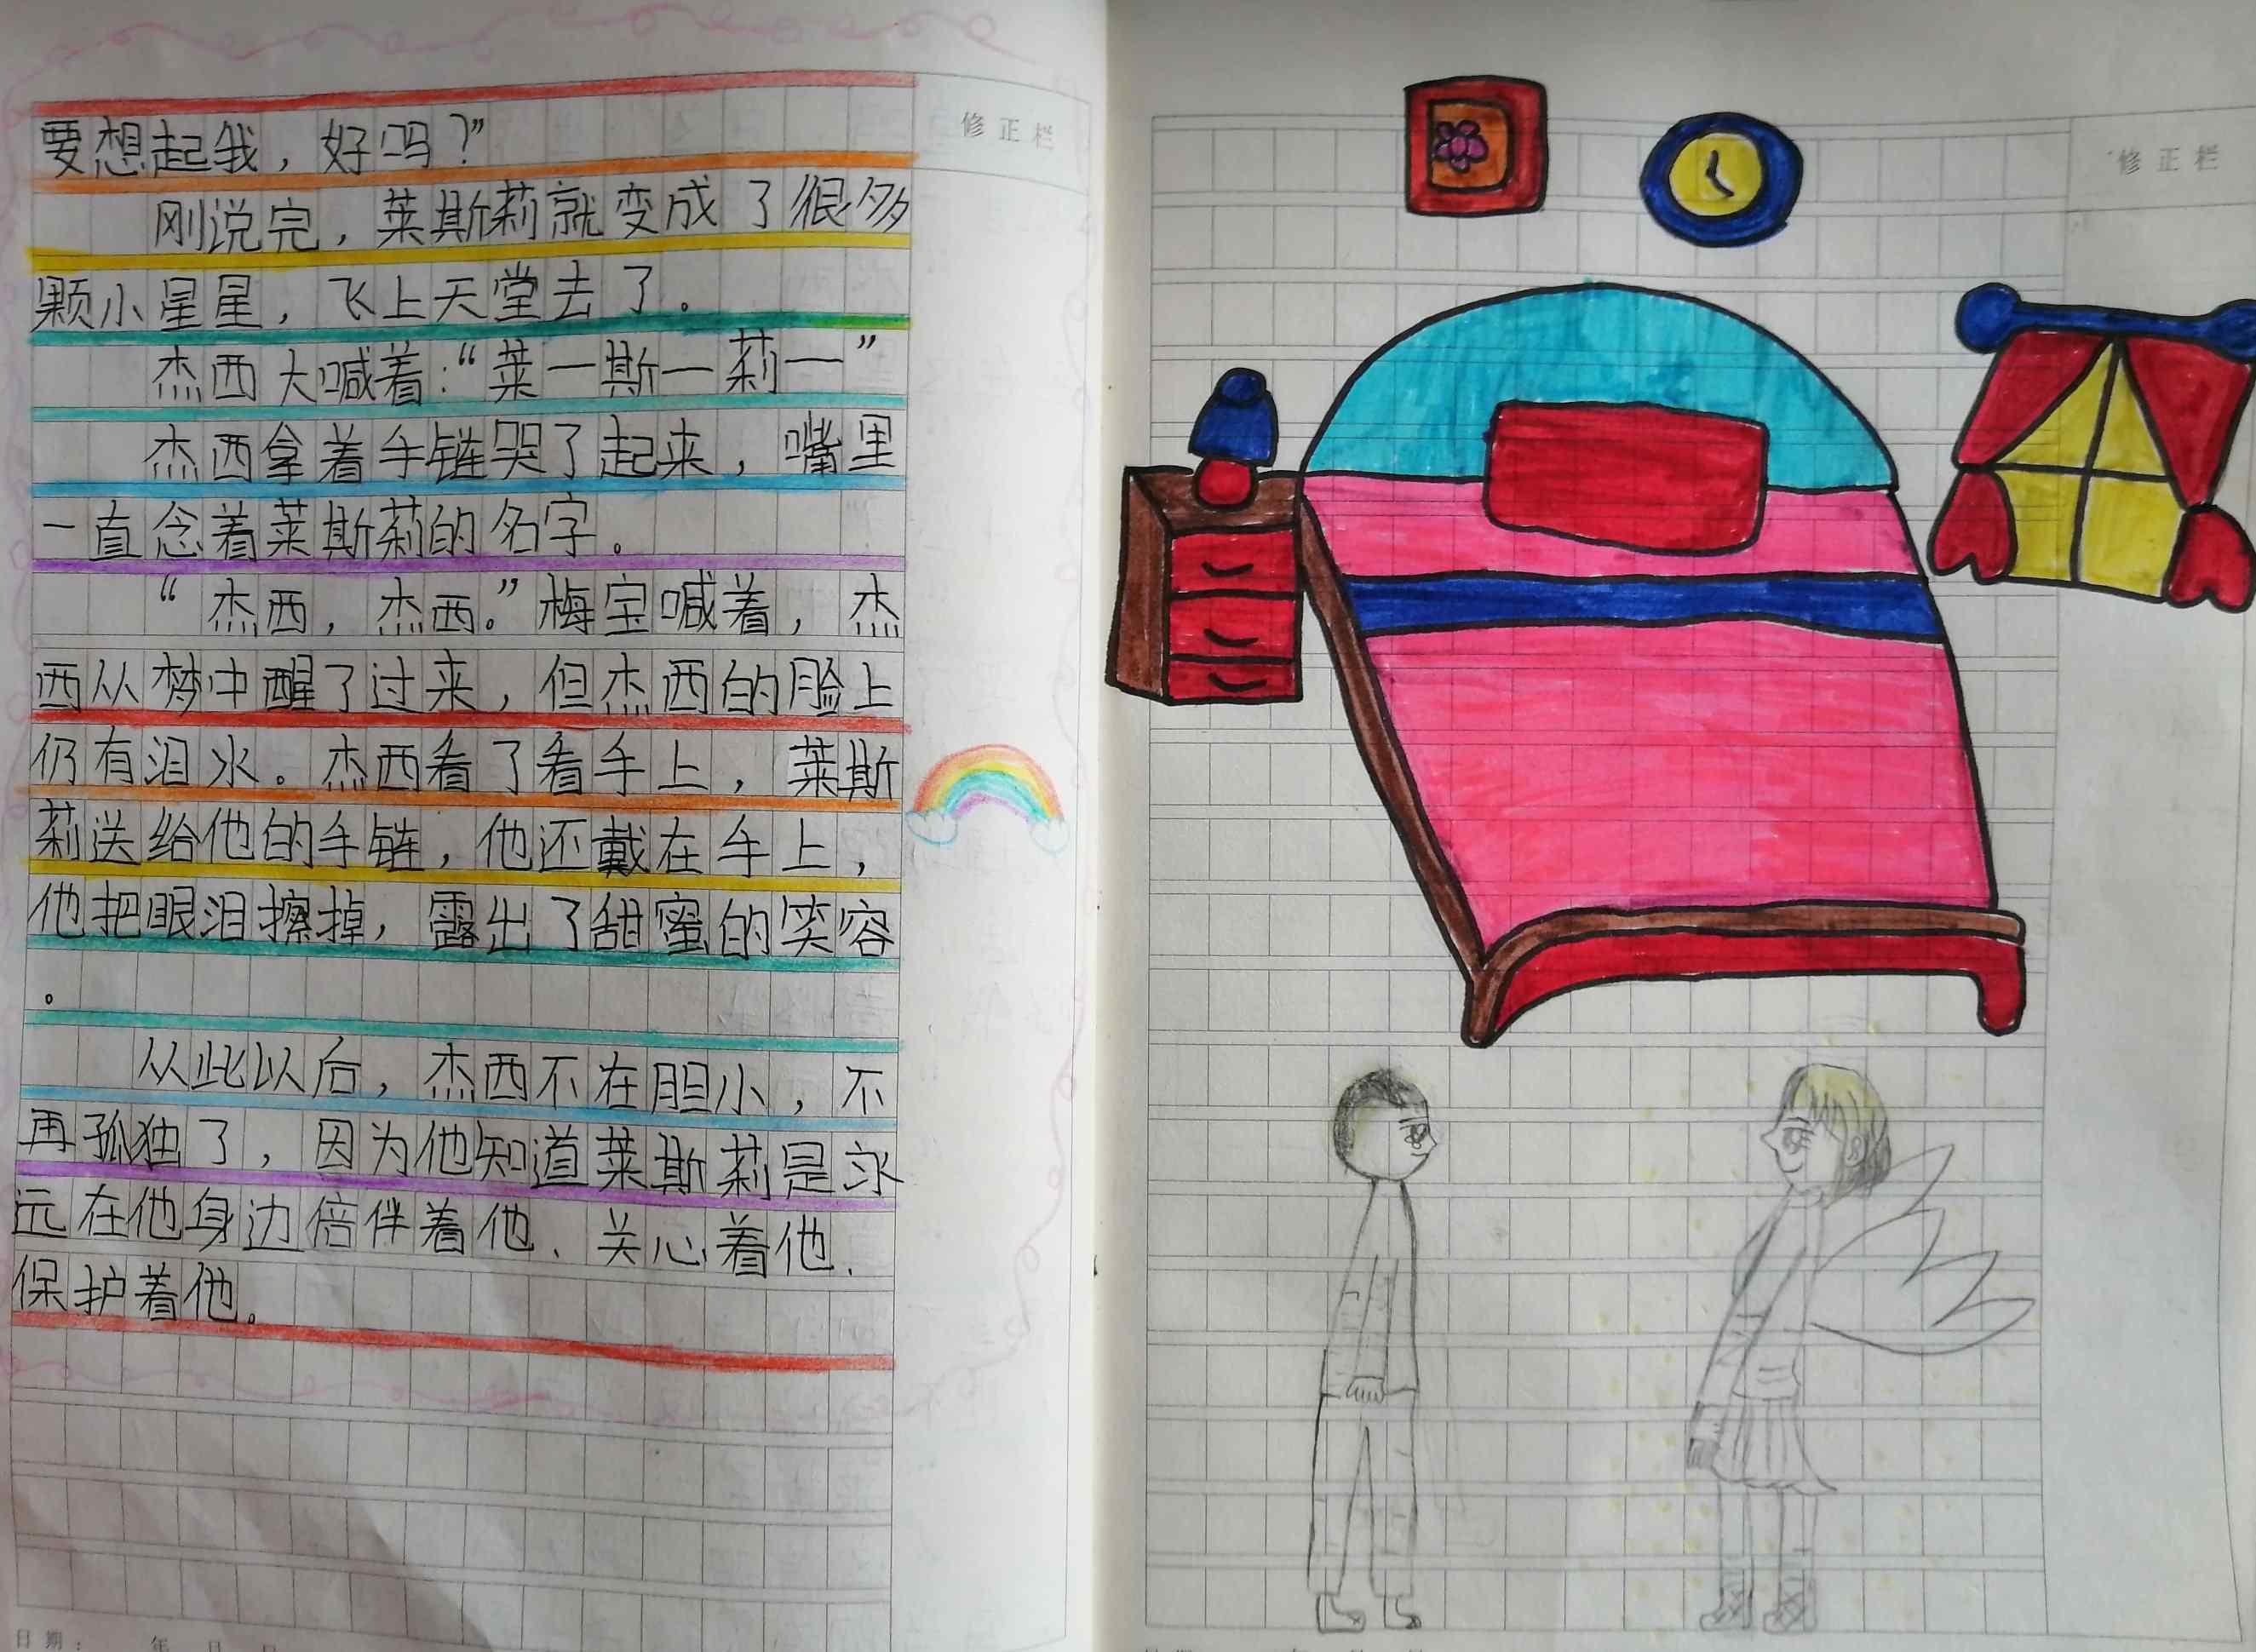 要想起我，好吗？”
刚说完，莱斯莉就变成了很多
颗小星星，飞上天堂去了。
杰西大喊着：“莱一斯一莉一”
杰西拿着手链哭了起来，嘴里
一直念着莱斯莉的名字。
“杰西，杰西。”梅宝喊着，杰
西从梦中醒了过来，但杰西的脸上
仍有泪水。杰西看了看手上，莱斯
莉送给他的手链，他还戴在手上，
他把眼泪擦掉，露出了甜蜜的笑容
。
从此以后，杰西不在胆小，不
再孤独了，因为他知道莱斯莉是永
远在他身边倍伴着他、关心着他、
保护着他。
修正栏
日期：　年　月　日
修正栏